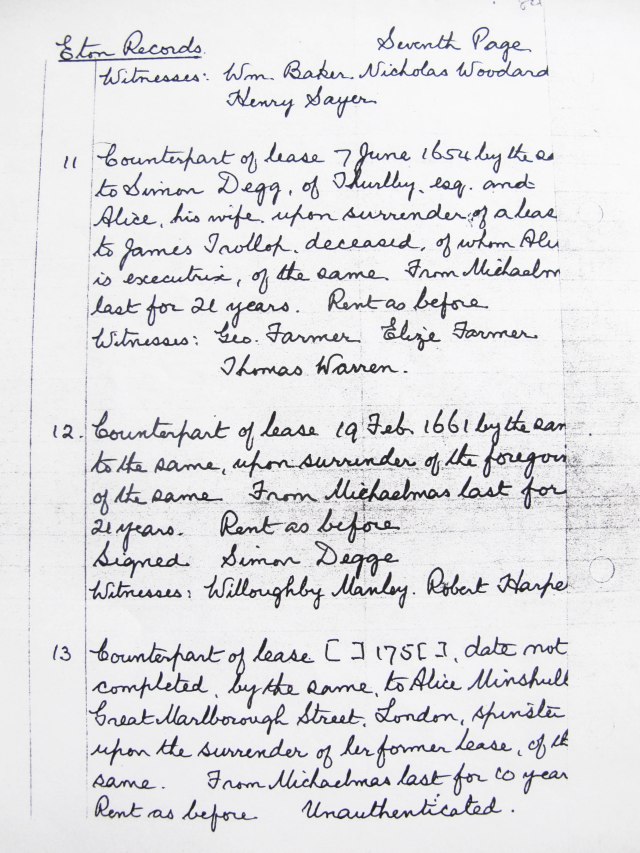 Eton Records. Seventh Page
Witnesses: Wm Baker. Nicholas Woodard
Henry Sayer
11 Counterpart of lease 7 June 1654 by the sa
to Simon Degg, of Thurlby, esq. and
Alice, his wife upon surrender of a leas
to James Trollop, deceased, of whom Ali
is executrix, of the same. From Michaelm
last for 21 years. Rent as before
Witnesses: Geo. Farmer Elize Farmer
Thomas Warren.
12. Counterpart of lease 19 Feb. 1661 by the sam
to the same, upon surrender of the foregoin
of the same From Michaelmas last for
21 years. Rent as before
Signed Simon Degge
Witnesses: Willoughby Manley. Robert Harpe
13 Counterpart of lease [ ] 175[ ], date not
completed, by the same, to Alice Minshull
Great Marlborough Street, London, spinster
upon the surrender of her former lease, of th
same. From Michaelmas last for 10 year
Rent as before Unauthenticated.